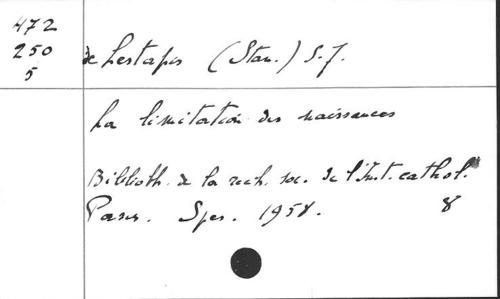 472
250
5
de Lestapis (Stan.) S.J.
La limitation des naissances
Biblioth. de la rech. soc. de l'Inst. cathol.
Paris. Spes. 1958. 8